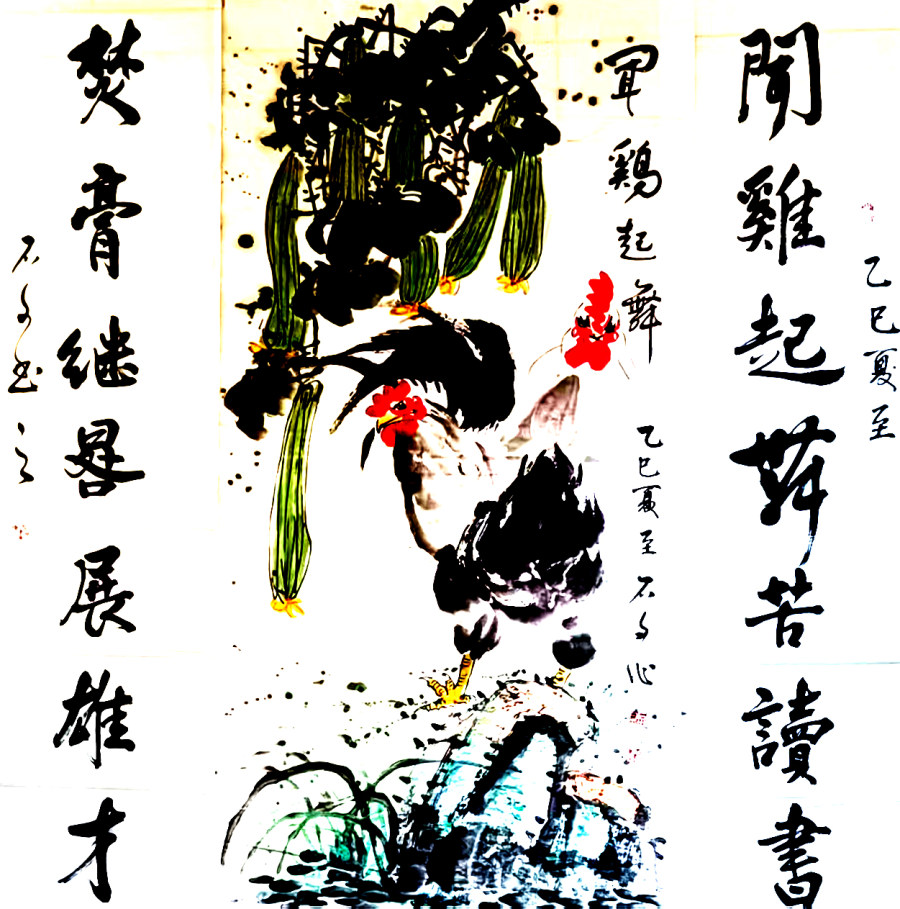 聞雞起舞苦讀書
乙巳夏至
闻鷄起舞
乙巳夏至石
焚膏继晷展雄才
石